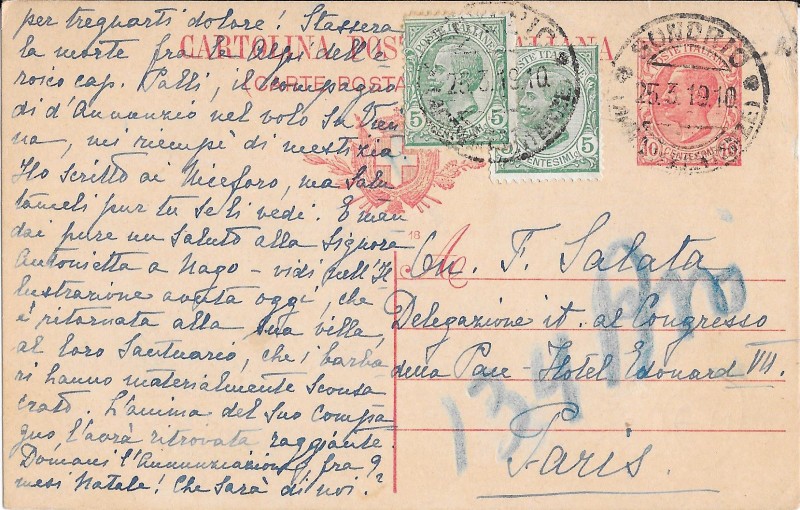 per treguarti dolore! Stassera
la morte fra le Alpi dell'e
roico cap. Palli, il compagno
di d'Annunzio nel volo su Vien
na, mi riempì di mestizia.
Ho scritto ai Niceforo, ma Salu
tanceli pur tu se li vedi. E man
dai pure un saluto alla Signora
Antonietta a Nago - vidi nell'Il
lustrazione avuta oggi, che
è ritornata alla sua villa,
al loro Santuario, che i barba
ri hanno materialmente sconsa
crato. L'anima del suo compa
gno, l'avrà ritrovata raggiante.
Domani l'Annunziazione, fra 9
mesi Natale! Che sarà di noi?
CARTOLINA POSTALE ITALIANA
CARTE POSTA
POSTE ITALIANE
5 5
CENTESIMI
POSTE ITALIANE
5
CENTESIMI
SONDRIO
25.3.19.10
SONDRIO
25.3.19.10
POSTE ITALIANE
10
CENTESIMI
18
A
On. F. Salata
Delegazione it. al Congresso
della Pace - Hotel Edouard VII.
Paris.
134